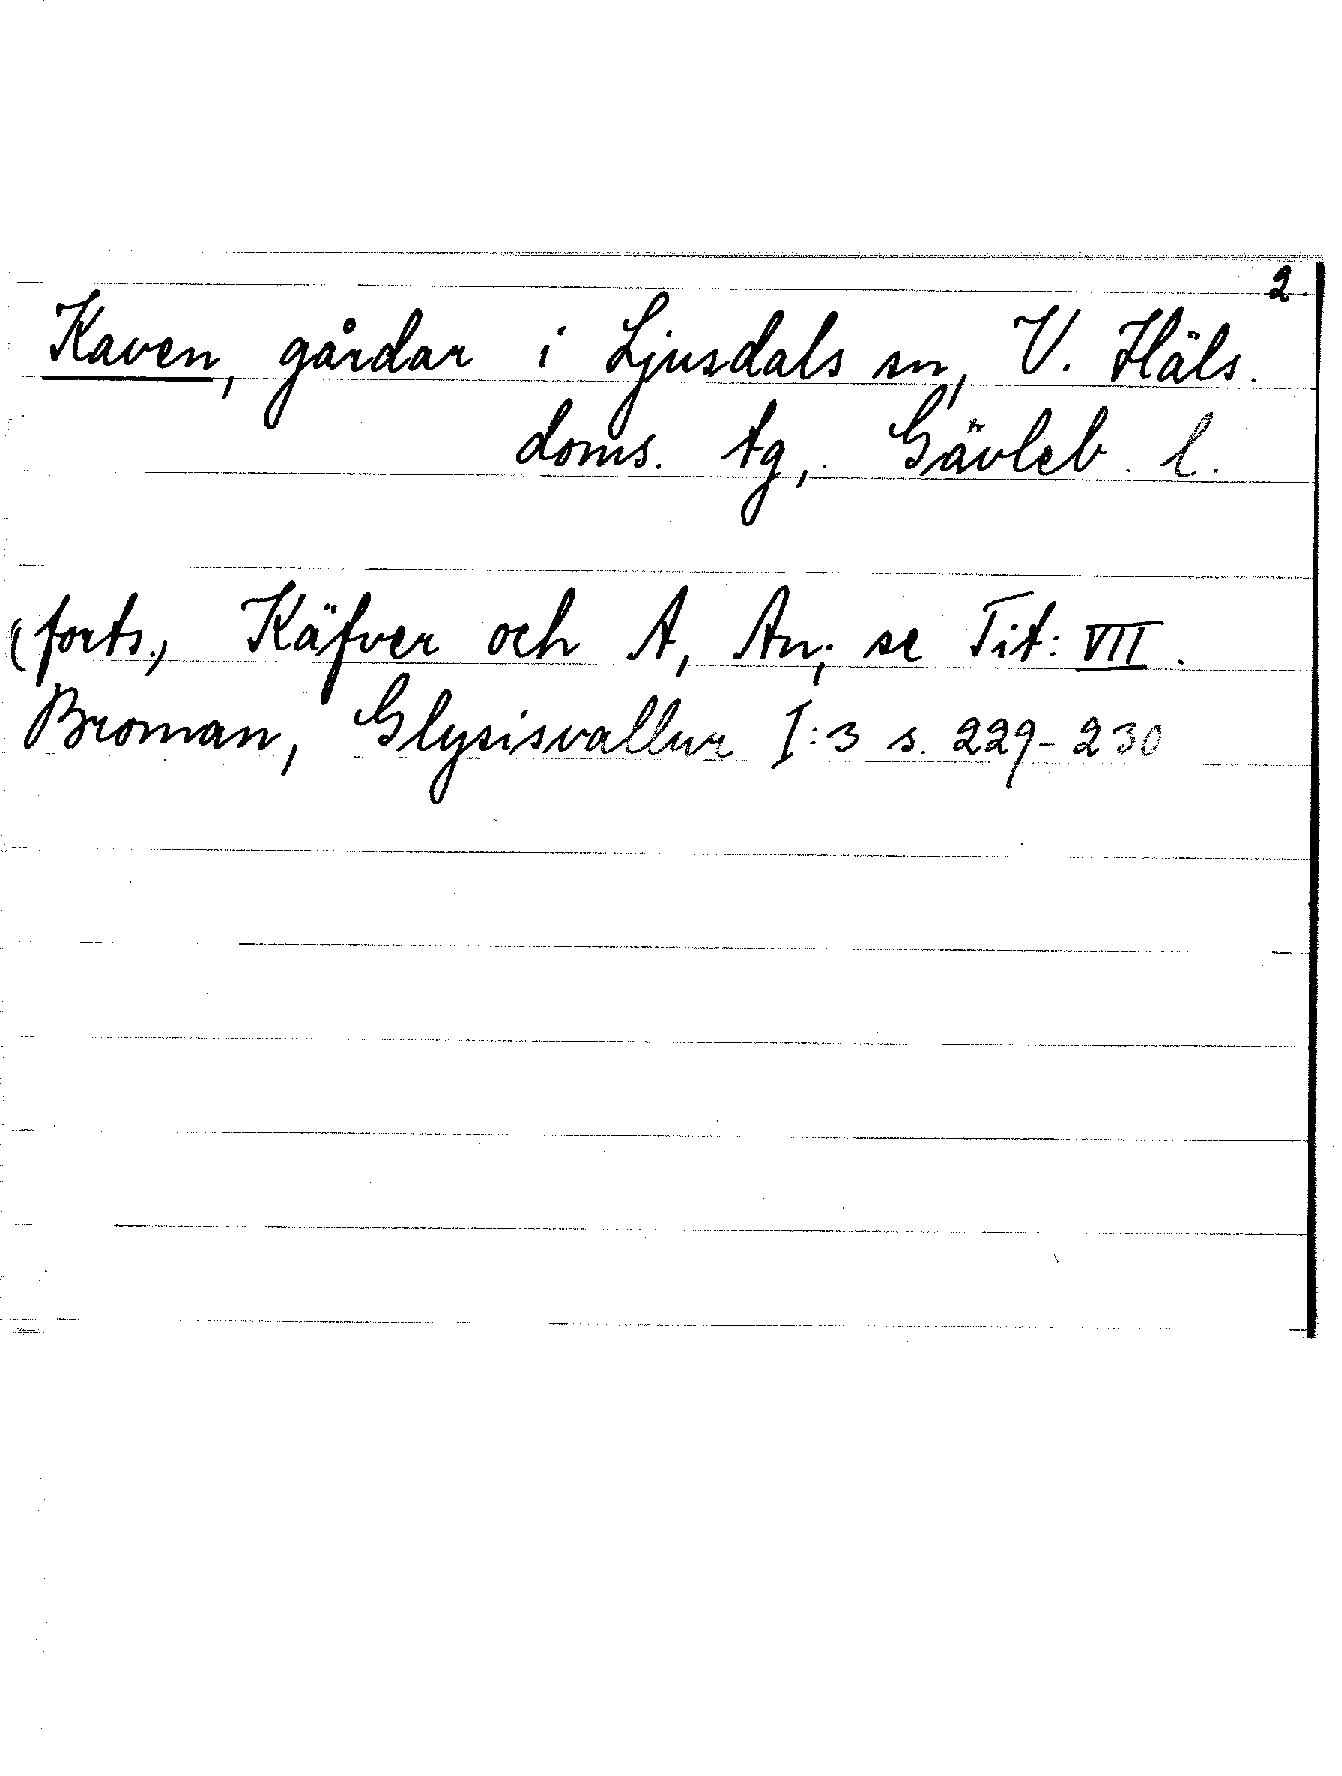 2.
Kaven, gårdar i Ljusdals sn, V. Häls.
doms. tg, Gävleb. l.
(forts.) Käfver och A, An; se Tit: VII.
Broman, Glysisvallur I:3 s. 229-230